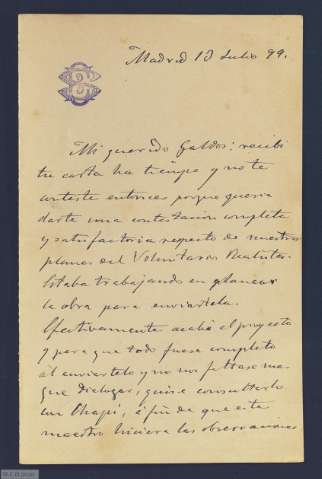 Madrid 13 Julio 99.
Mi querido Galdós: recibí
tu carta ha tiempo y no te
contesté entonces porque queria
darte una contestación completa
y satisfactoria respecto de nuestros
planes del Voluntarios Realistas.
Estaba trabajando en planear
la obra para enviartela.
Efectivamente acabé el proyecto
y para que todo fuese completo
al enviartelo y no nos faltase mas
que dialogar, quise consultarlo
con Chapí, á fin de que este
maestro hiciera las observaciones